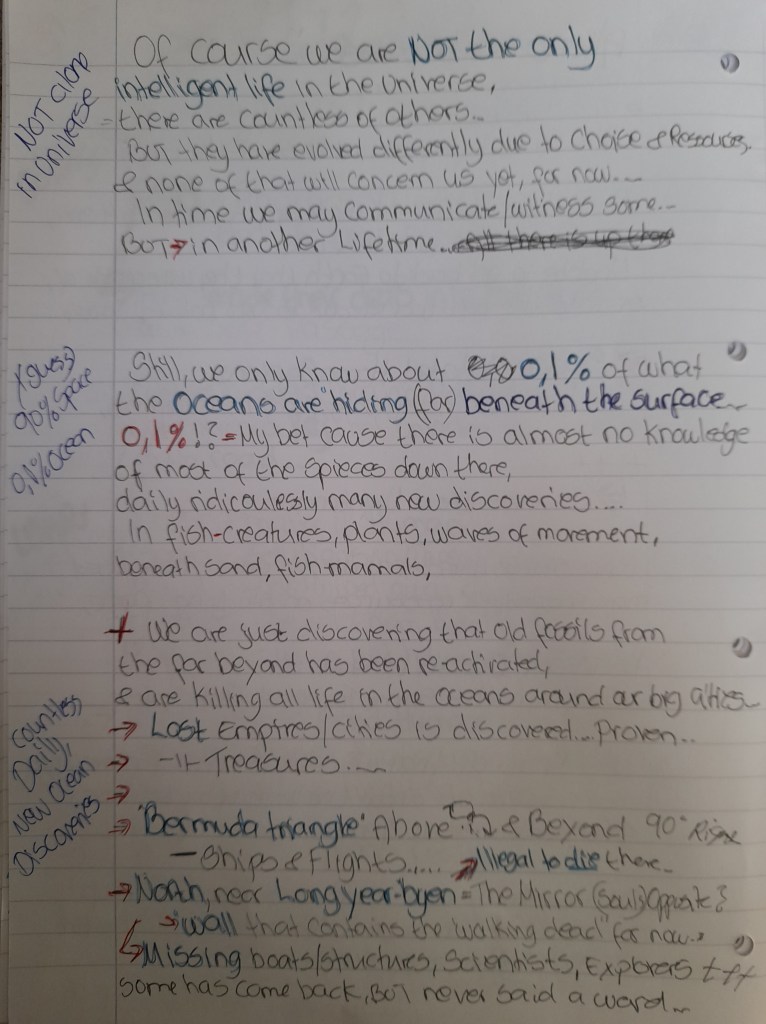 Of course we are NOT the only
intelligent life in the Universe,
there are countless of others...
BUT they have evolved differently due to Choise & Resources.
& none of that will concern us yet, for now....
In time we may communicate/witness some...
BUT → in another Lifetime...
NOT alop
in universe
Still, we only know about 0,1% of what
the Oceans are "hiding (far) beneath the surface...
0,1%!? = My bet cause there is almost no knowledge
of most of the spieces down there,
daily ridicoulessly many new discoveries....
In fish-creatures, plants, waves of movement,
beneath sand, fish-mamals,
(guess)
90% Space
0,1% Ocean
+ We are just discovering that old fossils from
the far beyond has been re-activated,
& are killing all life in the oceans around our big cities...
→ Lost Empires/cities is discovered... Proven...
→ -11- Treasures....
→
→ 'Bermuda triangle' Above & Beyond 90°
- Ships & Flights..... → Illegal to die there...
→ North, near Longyear-byen = The Mirror (Souls) Oposite?
→ "wall that contains the walking dead" for now..
↳ Missing boats/structures, Scientists, Explorers +++
some has come back, BUT never said a word...
Countless
Daily,
New Ocean
Discoveries